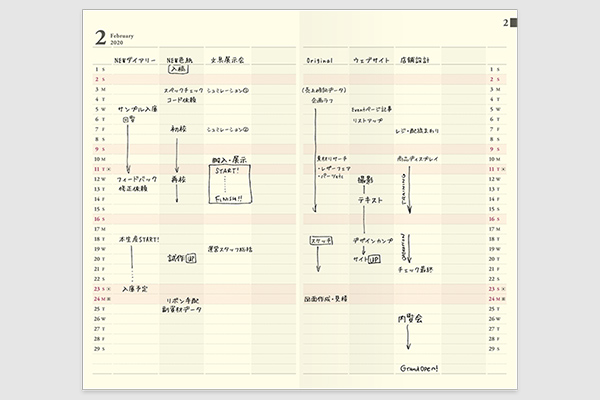 2 February
2020
2
NEWダイアリー
NEW色紙
文具展示会
Original
ウェブサイト
店舗設計
入稿
スペックチェック
コード依頼
シュミレーション①
(売上時計データ)
企画ラフ
サンプル入庫
回覧
Eventページ記事
リストアップ
初校
シュミレーション②
レジ・配線まわり
搬入・展示
素材リサーチ
・レザーフェア
・パーツetc
商品ディスプレイ
START!
フィードバック
修正依頼
再校
撮影
TRAINING
FINISH!!
テキスト
本生産START!
試作UP
運営スタッフ総括
スケッチ
デザインカンプ
サイトUP
OPERATION
チェック最終
入庫予定
リボン手配
副資材データ
図面作成・見積
内覧会
Grand open!
1 S
2 S
3 M
4 T
5 W
6 T
7 F
8 S
9 S
10 M
11 T
12 W
13 T
14 F
15 S
16 S
17 M
18 T
19 W
20 T
21 F
22 S
23 S
24 M
25 T
26 W
27 T
28 F
29 S
1 S
2 S
3 M
4 T
5 W
6 T
7 F
8 S
9 S
10 M
11 T
12 W
13 T
14 F
15 S
16 S
17 M
18 T
19 W
20 T
21 F
22 S
23 S
24 M
25 T
26 W
27 T
28 F
29 S